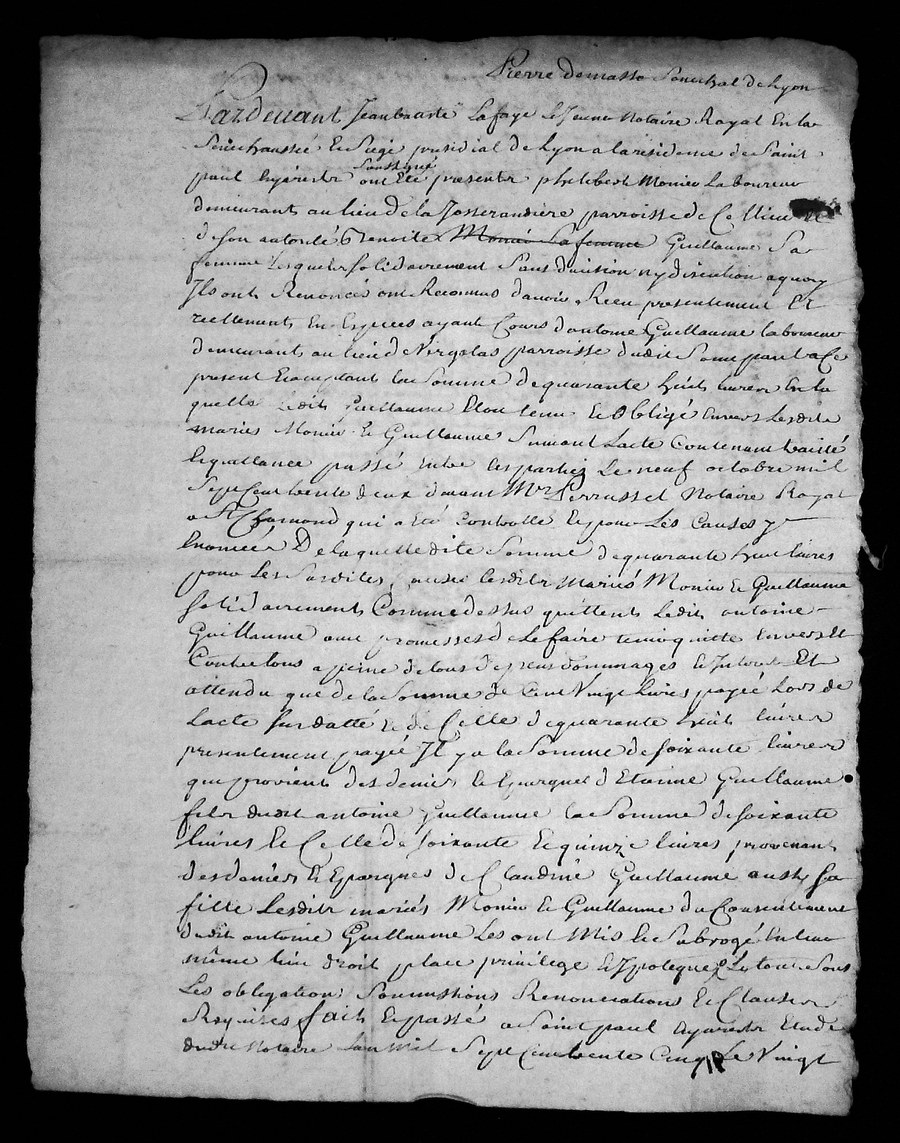 Pierre demasso Senechal de Lyon
Pardevant Jean Lafaye Le Jeune Notaire Royal En la
Senechaussée Et Siege presidial de Lyon a la residence de Saint
paul Enjarestz Soussigné ont Eté presents philibert Monier Laboureur
demeurant au lieu de la Josserandiere parroisse de Ce lieu Et
de Son autorité Benoite Monier Sa femme Guillaume Sa
femme Lesquels Solidairement Sans division ny discution a quoy
Ils ont Renoncés ont Reconnus d'avoir Receu presentement Et
reellement En Especes ayant Cours d'antoine Guillaume laboureur
demeurant au lieu de parroisse dudit Saint paul a Ce
present Et acceptant la Somme de quarante huit livres En la
quelle Ledit Guillaume Etoit tenu Et Obligé Envers Lesdits
mariés Monier Et Guillaume Suivant Lacte Contenant traitté
Et quittance passé entre les parties Le neuf octobre mil
Sept Cent trente deux devant Mre Perrusset Notaire Royal
a St Chamond qui a Eté Controllé Et pour Les Causes y
Enoncées De laquelle dite Somme de quarante huit livres
pour Les Susdites Lesdits Mariés Monier Et Guillaume
Solidairement Comme dessus quittent Ledit antoine
Guillaume avec promesses de Le faire tenir quitte Envers Et
Contre tous a peine de tous depens dommages Et Interets Et
attendu que de la Somme de Cent Vingt Livres payée Lors de
Lacte Susdatté Et de Celle de quarante huit livres
presentement payée Il y a la Somme de Soixante livres
qui provient des deniers Et Epargnes d'Etienne Guillaume
fils dudit antoine Guillaume la Somme de Soixante
livres Et Celle de Soixante Et quinze livres provenant
des deniers Et Epargnes de Claudine Guillaume aussy Sa
fille Lesdits mariés Monier Et Guillaume du Consentement
dudit antoine Guillaume Les ont Mis Et Subrogé En leur
même lieu droit place privilege Et Ipoteque Le tout Sous
Les obligations Soumissions Renonciations Et Clauses
Requises fait Et passé a Saint paul Enjarestz Etude
dudit Notaire Lan Mil Sept Cent trente Cinq Le Vingt